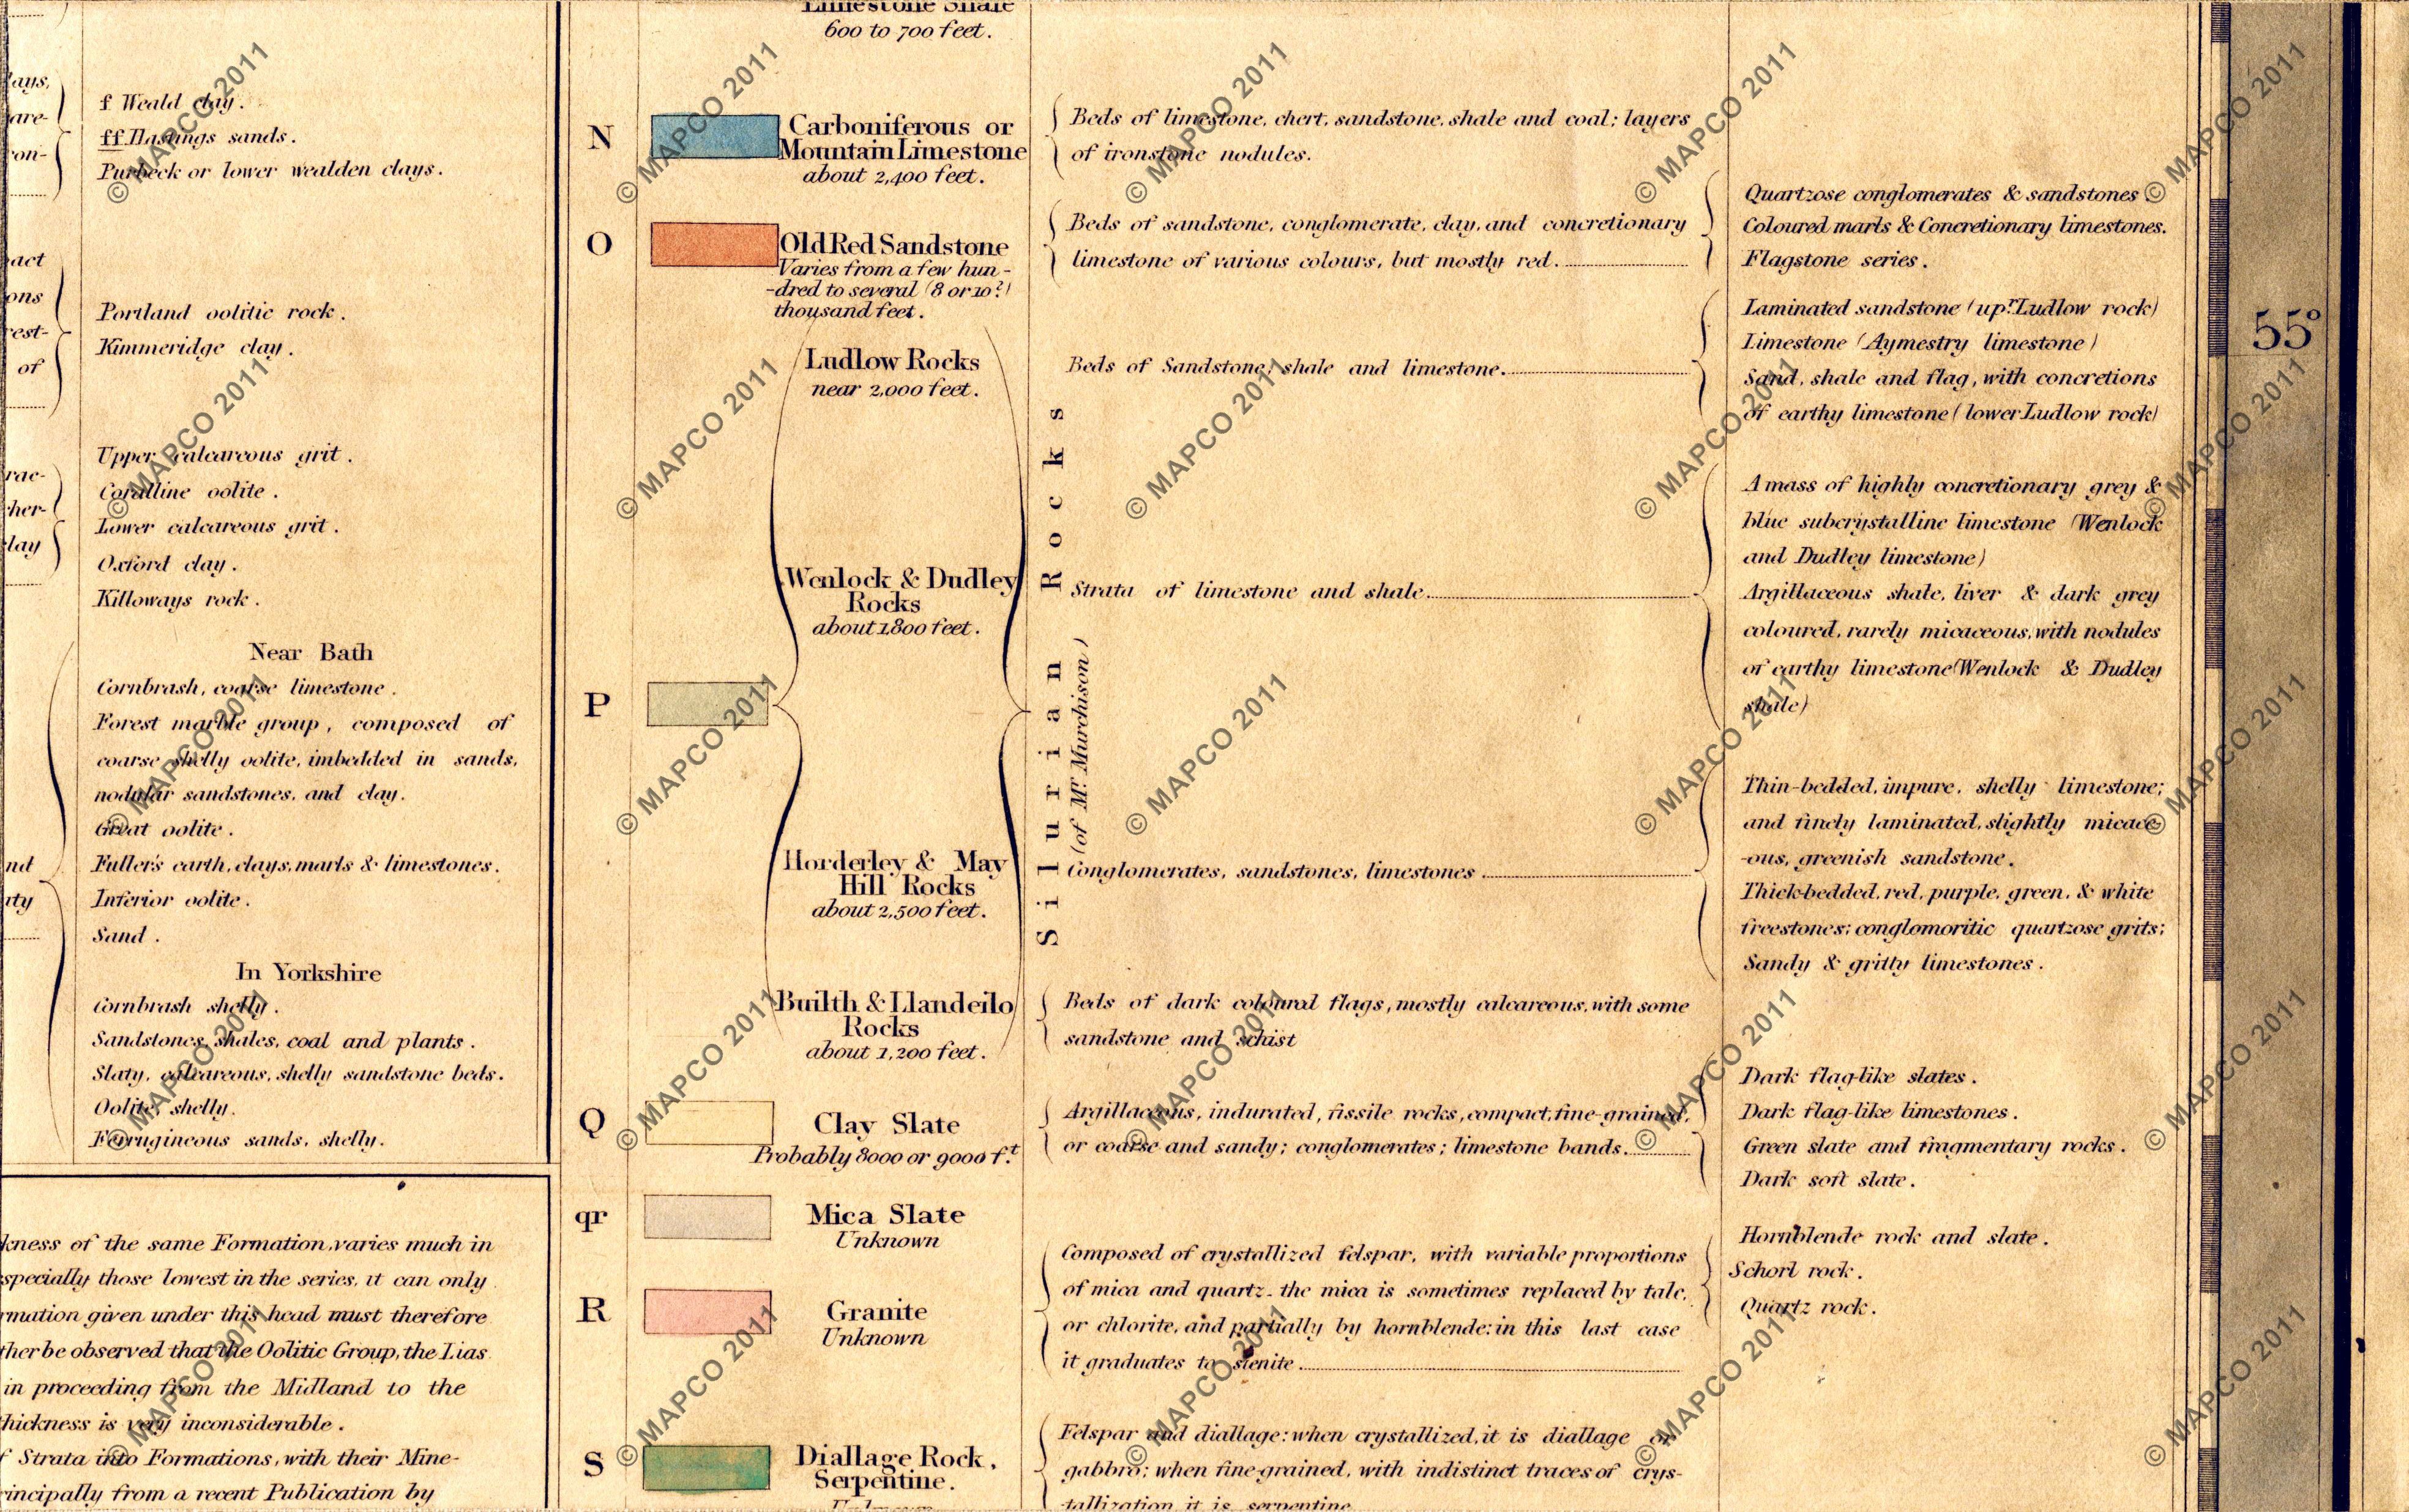 f Weald clay.
ff Hastings sands.
Purbeck or lower wealden clays.
Portland oolitic rock.
Kimmeridge clay.
of
Upper calcareous grit.
Coralline oolite.
Lower calcareous grit.
Oxford clay.
Killoways rock.
Near Bath
Cornbrash, coarse limestone.
Forest marble group, composed of
coarse shelly oolite, imbedded in sands,
nodular sandstones, and clay.
Great oolite.
Fuller's earth, clays, marls & limestones.
Inferior oolite.
Sand.
In Yorkshire
Cornbrash shelly.
Sandstones, shales, coal and plants.
Slaty, calcareous, shelly sandstone beds.
Oolite, shelly.
Ferrugineous sands, shelly.
kness of the same Formation, varies much in
specially those lowest in the series, it can only
rmation given under this head must therefore
ther be observed that the Oolitic Group, the Lias
in proceeding from the Midland to the
hickness is very inconsiderable.
f Strata into Formations, with their Mine-
rincipally from a recent Publication by
Limestone Shale
600 to 700 feet.
N
Carboniferous or
Mountain Limestone
about 2,400 feet.
Beds of limestone, chert, sandstone, shale and coal; layers
of ironstone nodules.
O
Old Red Sandstone
Varies from a few hun-
-dred to several (8 or 10?)
thousand feet.
Beds of sandstone, conglomerate, clay, and concretionary
limestone of various colours, but mostly red.
Quartzose conglomerates & sandstones
Coloured marls & Concretionary limestones.
Flagstone series.
P
Silurian Rocks
(of Mr. Murchison)
Ludlow Rocks
near 2,000 feet.
Beds of Sandstone, shale and limestone.
Laminated sandstone (upr. Ludlow rock)
Limestone (Aymestry limestone)
Sand, shale and flag, with concretions
of earthy limestone (lower Ludlow rock)
Wenlock & Dudley
Rocks
about 1800 feet.
Strata of limestone and shale
A mass of highly concretionary grey &
blue subcrystalline limestone (Wenlock
and Dudley limestone)
Argillaceous shale, liver & dark grey
coloured, rarely micaceous, with nodules
of earthy limestone (Wenlock & Dudley
shale)
Horderley & May
Hill Rocks
about 2,500 feet.
Conglomerates, sandstones, limestones
Thin-bedded, impure, shelly limestone;
and finely laminated, slightly micace-
-ous, greenish sandstone.
Thick-bedded, red, purple, green, & white
freestones; conglomoritic quartzose grits;
Sandy & gritty limestones.
Builth & Llandeilo
Rocks
about 1,200 feet.
Beds of dark coloured flags, mostly calcareous, with some
sandstone and schist
Q
Clay Slate
Probably 8000 or 9000 ft.
Argillaceous, indurated, fissile rocks, compact, fine-grained,
or coarse and sandy; conglomerates; limestone bands.
Dark flag-like slates.
Dark flag-like limestones.
Green slate and fragmentary rocks.
Dark soft slate.
qr
Mica Slate
Unknown
R
Granite
Unknown
Composed of crystallized felspar, with variable proportions
of mica and quartz- the mica is sometimes replaced by talc,
or chlorite, and partially by hornblende: in this last case
it graduates to sienite
Hornblende rock and slate.
Schorl rock.
Quartz rock.
S
Diallage Rock,
Serpentine.
Felspar and diallage: when crystallized, it is diallage or
gabbro; when fine-grained, with indistinct traces of crys-
tallization it is serpentine
55°
© MAPCO 2011